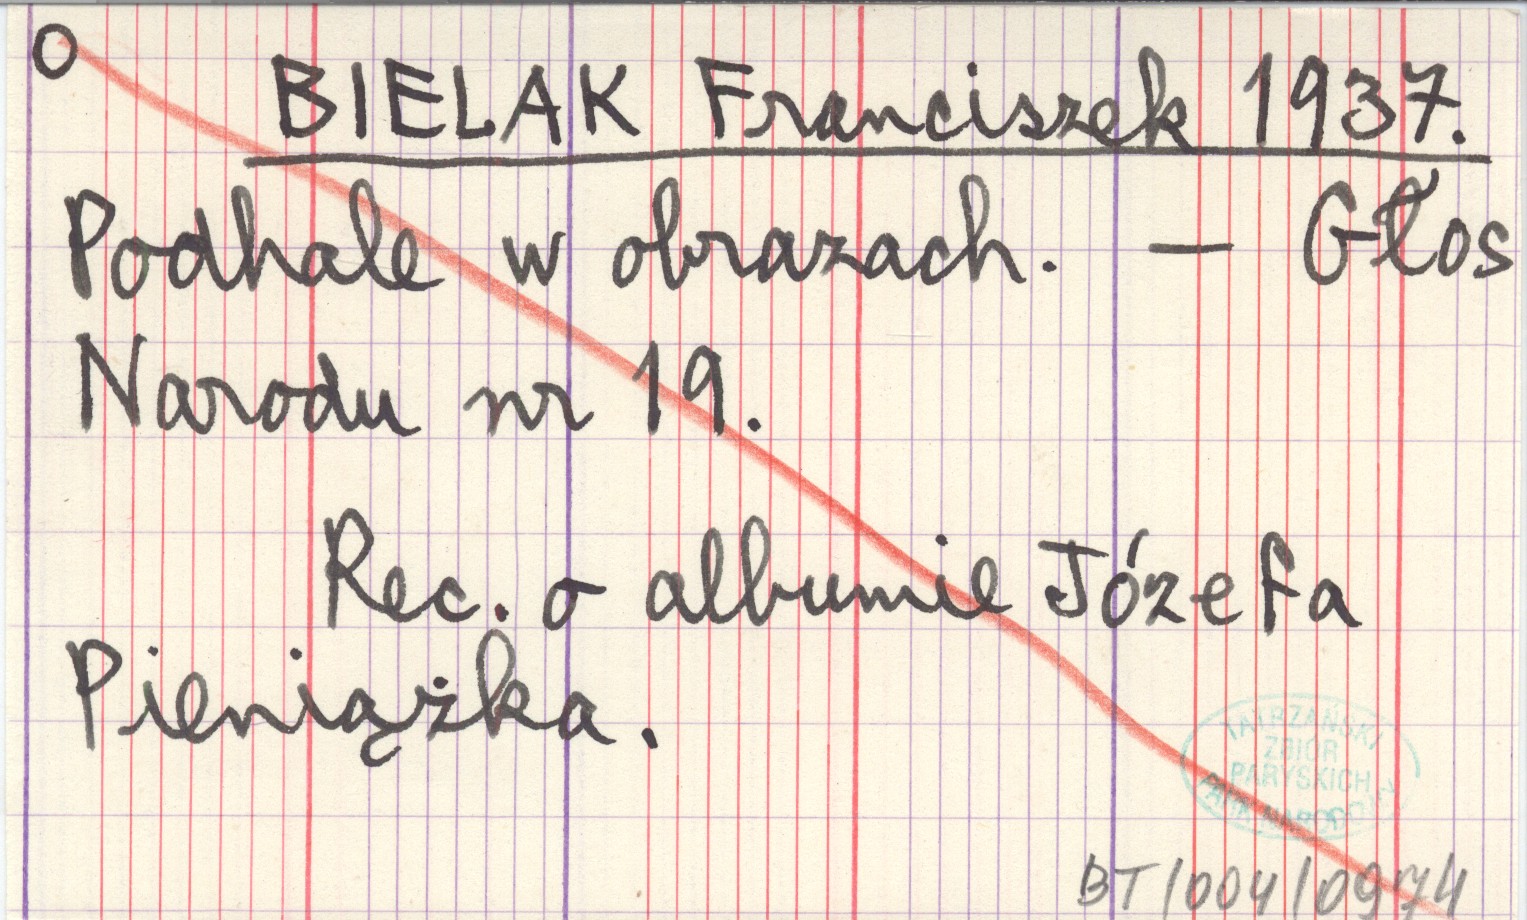 O
BIELAK Franciszek 1937.
Podhale w obrazach. — Głos
Narodu nr 19.
Rec. o albumie Józefa
Pieniążka.
TATRZAŃSKI
ZBIÓR
PARYSKICH
PARK NARODOWY
BT/004/0974